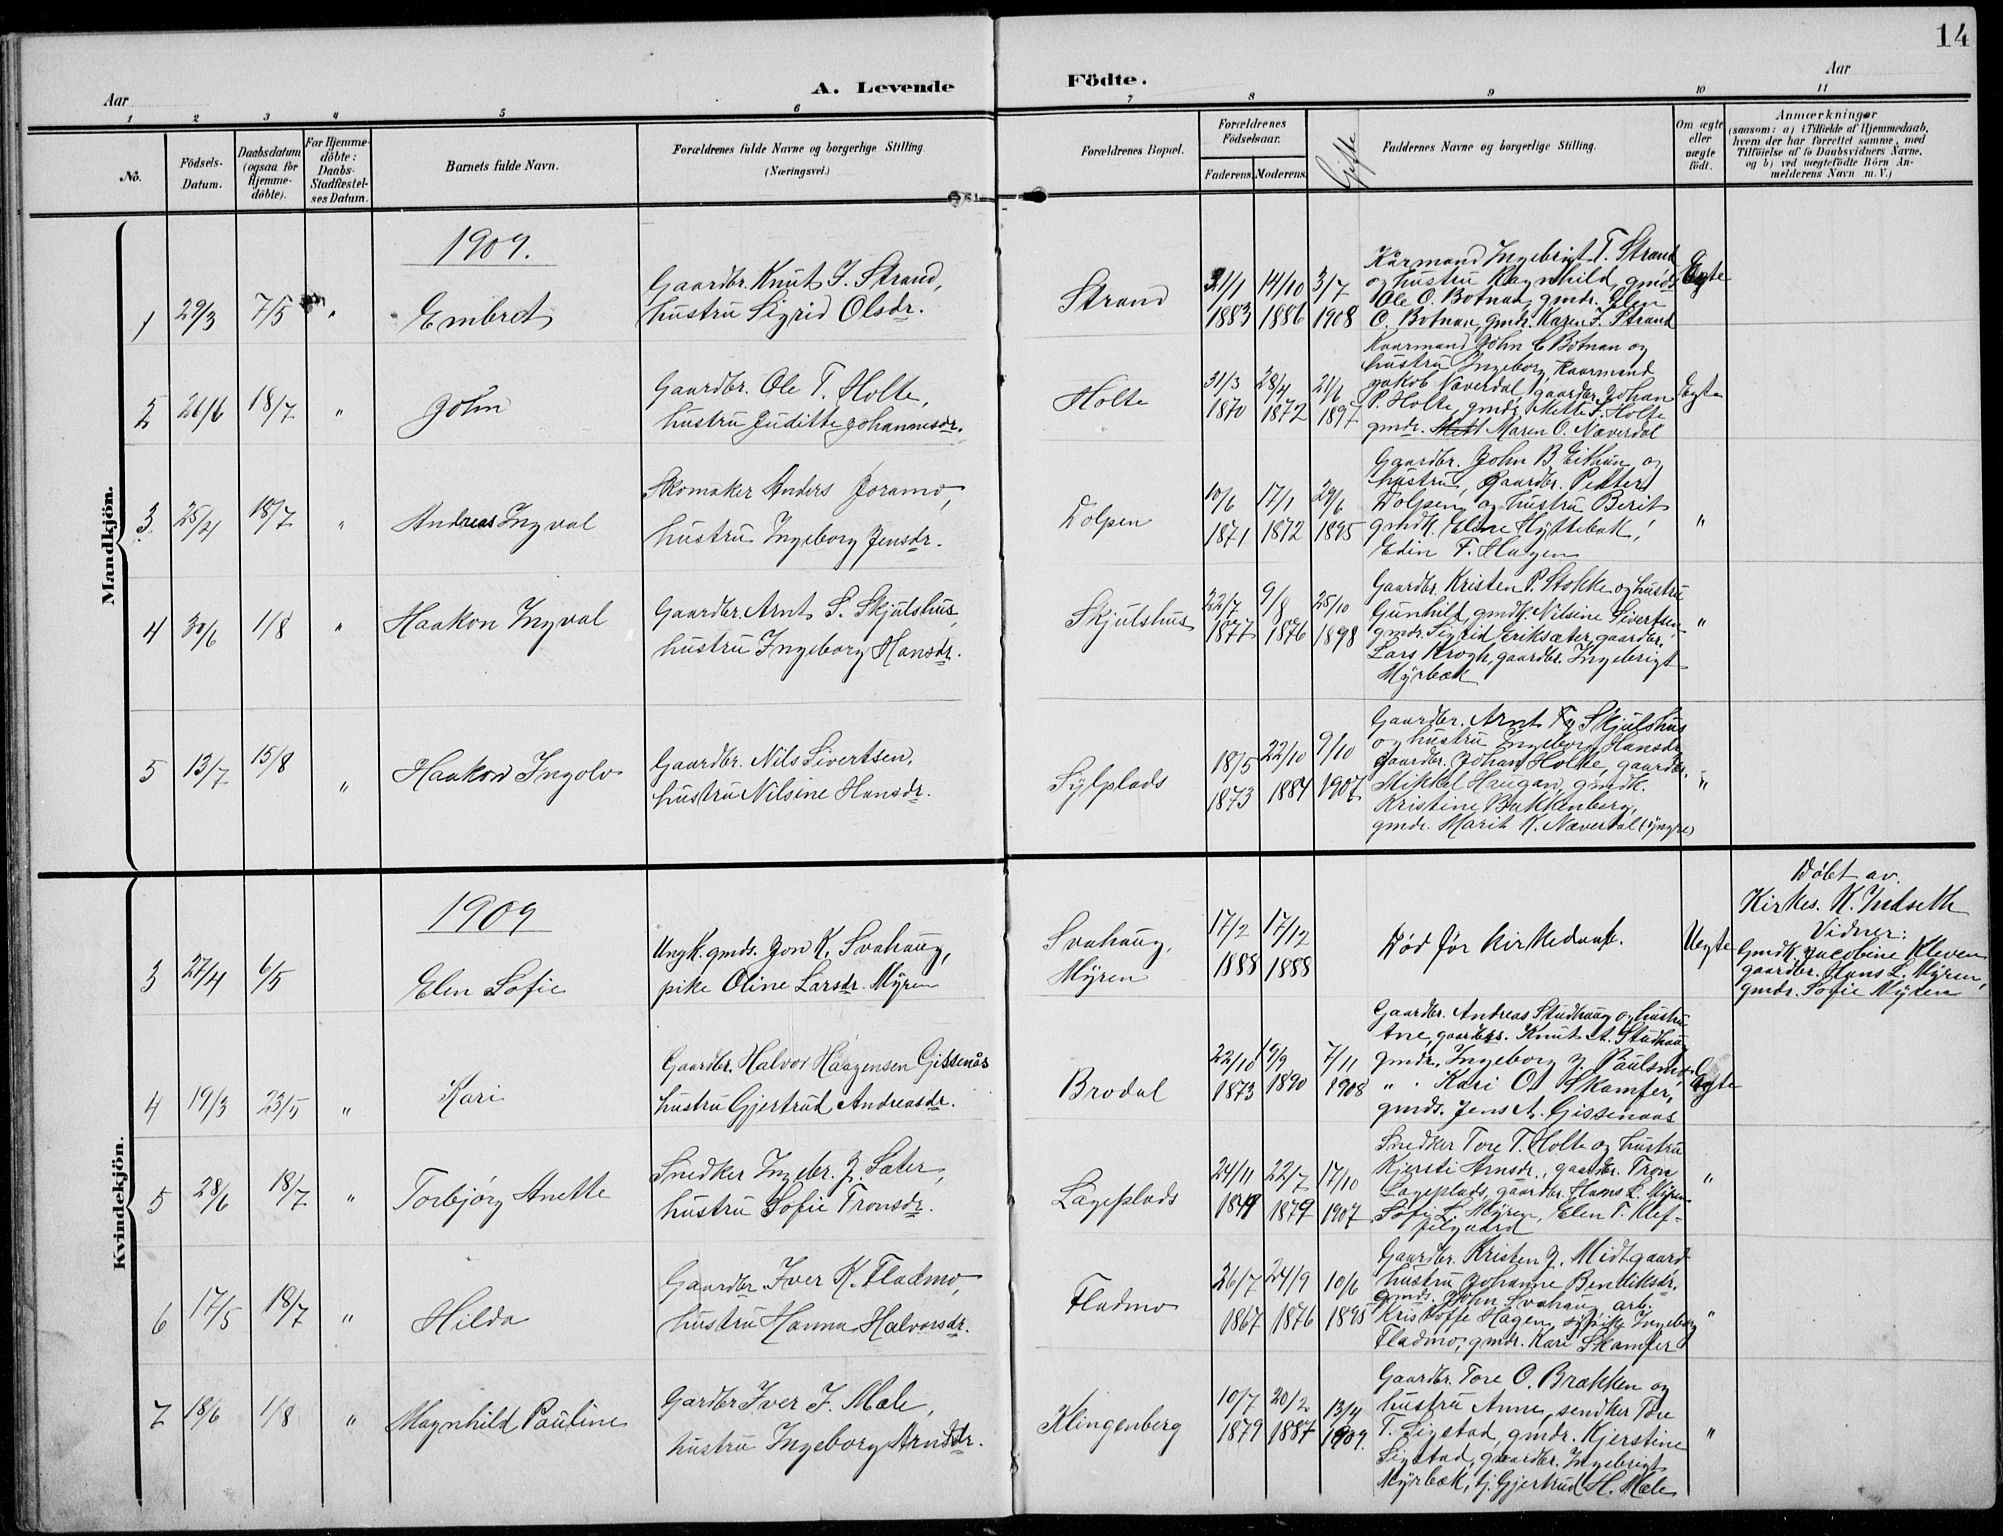 14
Aar
A. Levende Födte.
Aar
1 2 3 4 5 6 7 8 9 10 11
No.
Födsels-Datum.
Daabsdatum (ogsaa for Hjemme-döbte).
For Hjemme-döbte: Daabs-Stadfæstel-ses Datum.
Barnets fulde Navn.
Forældrenes fulde Navne og borgerlige Stilling.
(Næringsvei.)
Forældrenes Bopæl.
Forældrenes Födselsaar.
Faderens. Moderens.
Gifte
Faddernes Navne og borgerlige Stilling.
Om ægte eller uægte födt.
Anmærkninger
(saasom: a) i Tilfælde af Hjemmedaab,
hvem der har forrettet samme, med
Tilföielse af to Daabsvidners Navne,
og b) ved uægtefödte Börn An-
melderens Navn m. V.)
Mandkjön.
1909.
1 29/3 7/5 " Embret
Gaardbr. Knut I. Strand,
hustru Sigrid Olsdr.
Strand
31/1 14/10 3/7
1883 1886 1908
Kårmand Ingebrigt T. Strand
og hustru Ragnhild, gmds.
Ole O. Botnan, gmdr. Elen
O. Botnan, gmdr. Karen I. Strand
Egte
2 26/6 18/7 " John
Gaardbr. Ole T. Holte,
hustru Juditte Johannesdr.
Holte
31/3 28/4 21/6
1870 1872 1897
Kaarmand John E Botnan og
hustru Ingeborg, Kaarmand
Jakob Næverdal, gaardbr. Johan
P. Holte, gmdr. Mette I. Holte
gmdr. Maren O. Næverdal
Egte
3 25/4 18/7 " Andreas Ingval
Skomaker Anders Joramo,
hustru Ingeborg Jensdr.
Dolpen
10/6 17/1 29/6
1871 1872 1895
Gaardbr. John B. Eithun og
hustru, Gaardbr. Petter
Dolpen og hustru Berit
gmdk. Eline Hyttebak,
Edin F. Hagen
"
4 30/6 1/8 " Haakon Ingval
Gaardbr. Arnt S. Skjulshus,
hustru Ingeborg Hansdr.
Skjulshus
22/7 9/8 25/10
1877 1876 1898
Gaardbr. Kristen P. Stokke og hustru
Gunhild, gmdk. Nilsine Sivertsen
gmdr. Sigrid Eriksæter, gaardbr.
Lars Krogh, gaardbr. Ingebrigt
Myrbæk
"
5 13/7 15/8 " Haakon Ingolv
Gaardbr. Nils Sivertsen,
hustru Nilsine Hansdr.
Sylplads
18/5 22/10 9/10
1873 1884 1907
Gaardbr. Arnt Skjulshus
og hustru Ingeborg Hansdr.
Gaardbr. Johan Holte, gaardbr.
Mikkel Haugan, gmdk.
Kristine Bakkenberg,
gmdr. Marit K. Næverdal (yngre)
"
Kvindekjön.
1909
3 27/4 6/5 Elen Sofie
Ungk. gmds. Jon K. Svahaug,
pike Oline Larsdr. Myren
Svahaug,
Myren
17/2 17/12
1888 1888
Död før kirkedaab.
Uegte
Døbt av.
Kirkes. K. Indseth
Vidner:
Gmdk. Jacobine Kleven
gaardbr. Hans L. Myren,
gmdr. Sofie Myren
4 19/3 23/5 " Kari
Gaardbr. Halvor Haagensen Gissenås
hustru Gjertrud Andreasdr.
Brodal
22/10 19/9 7/11
1873 1890 1908
Gaardbr. Andreas Studhaug og hustru
Ane, gaardbrs. Knut A. Studhaug
gmdr. Ingeborg J. Paulsmo,
" Kari O. Skamfer,
gmds. Jens A. Gissenaas
Egte
5 28/6 18/7 " Torbjørg Anette
Snedker Ingebr. J. Sæter,
hustru Sofie Tronsdr.
Lageplads
24/11 22/7 17/10
1879 1907
Snedker Tore T. Holte og hustru
Kjersti Arnsdr., gaardbr. Tron
Lageplads, gaardbr. Hans L. Myren
Sofie L. Myren, Elen T. Klef-
filgaard
"
6 17/5 18/7 " Hilda
Gaardbr. Iver K. Fladmo,
hustru Hanna Halvorsdr.
Fladmo
26/7 24/9 10/6
1867 1876 1895
Gaardbr. Kristen J. Midtgaard
hustru Johanne Bendiksdr.
gmds. John Svahaug, arb.
Kristoffe Hagen, sypike Ingeborg
Fladmo, gmdr. Kari Skamfer
"
7 18/6 1/8 " Magnhild Pauline
Gardbr Iver I. Mæle,
hustru Ingeborg Arnsdr.
Klingenberg
10/7 20/2 13/4
1879 1887 1909.
Gaardbr. Tore O. Brækken og
hustru Anne, sendker Tore
T. Sigstad, gmdr. Kjerstine
Sigstad, gaardbr. Ingebrigt
Myrbæk, tj. Gjertrud H. Mæle
"